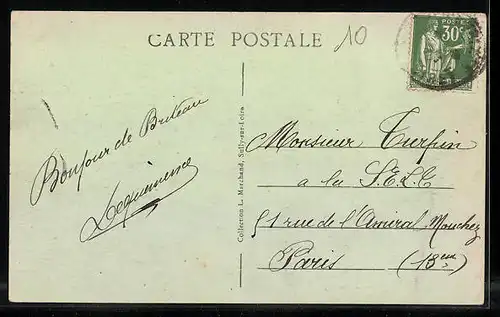 CARTE POSTALE
10
POSTES
30c
Bonjour de Briteau
Collection L. Marchand, Sully-sur-Loire
Monsieur Turpin
a la S.E.L.C
51 rue de l'Amiral Mouchez
Paris (13em)